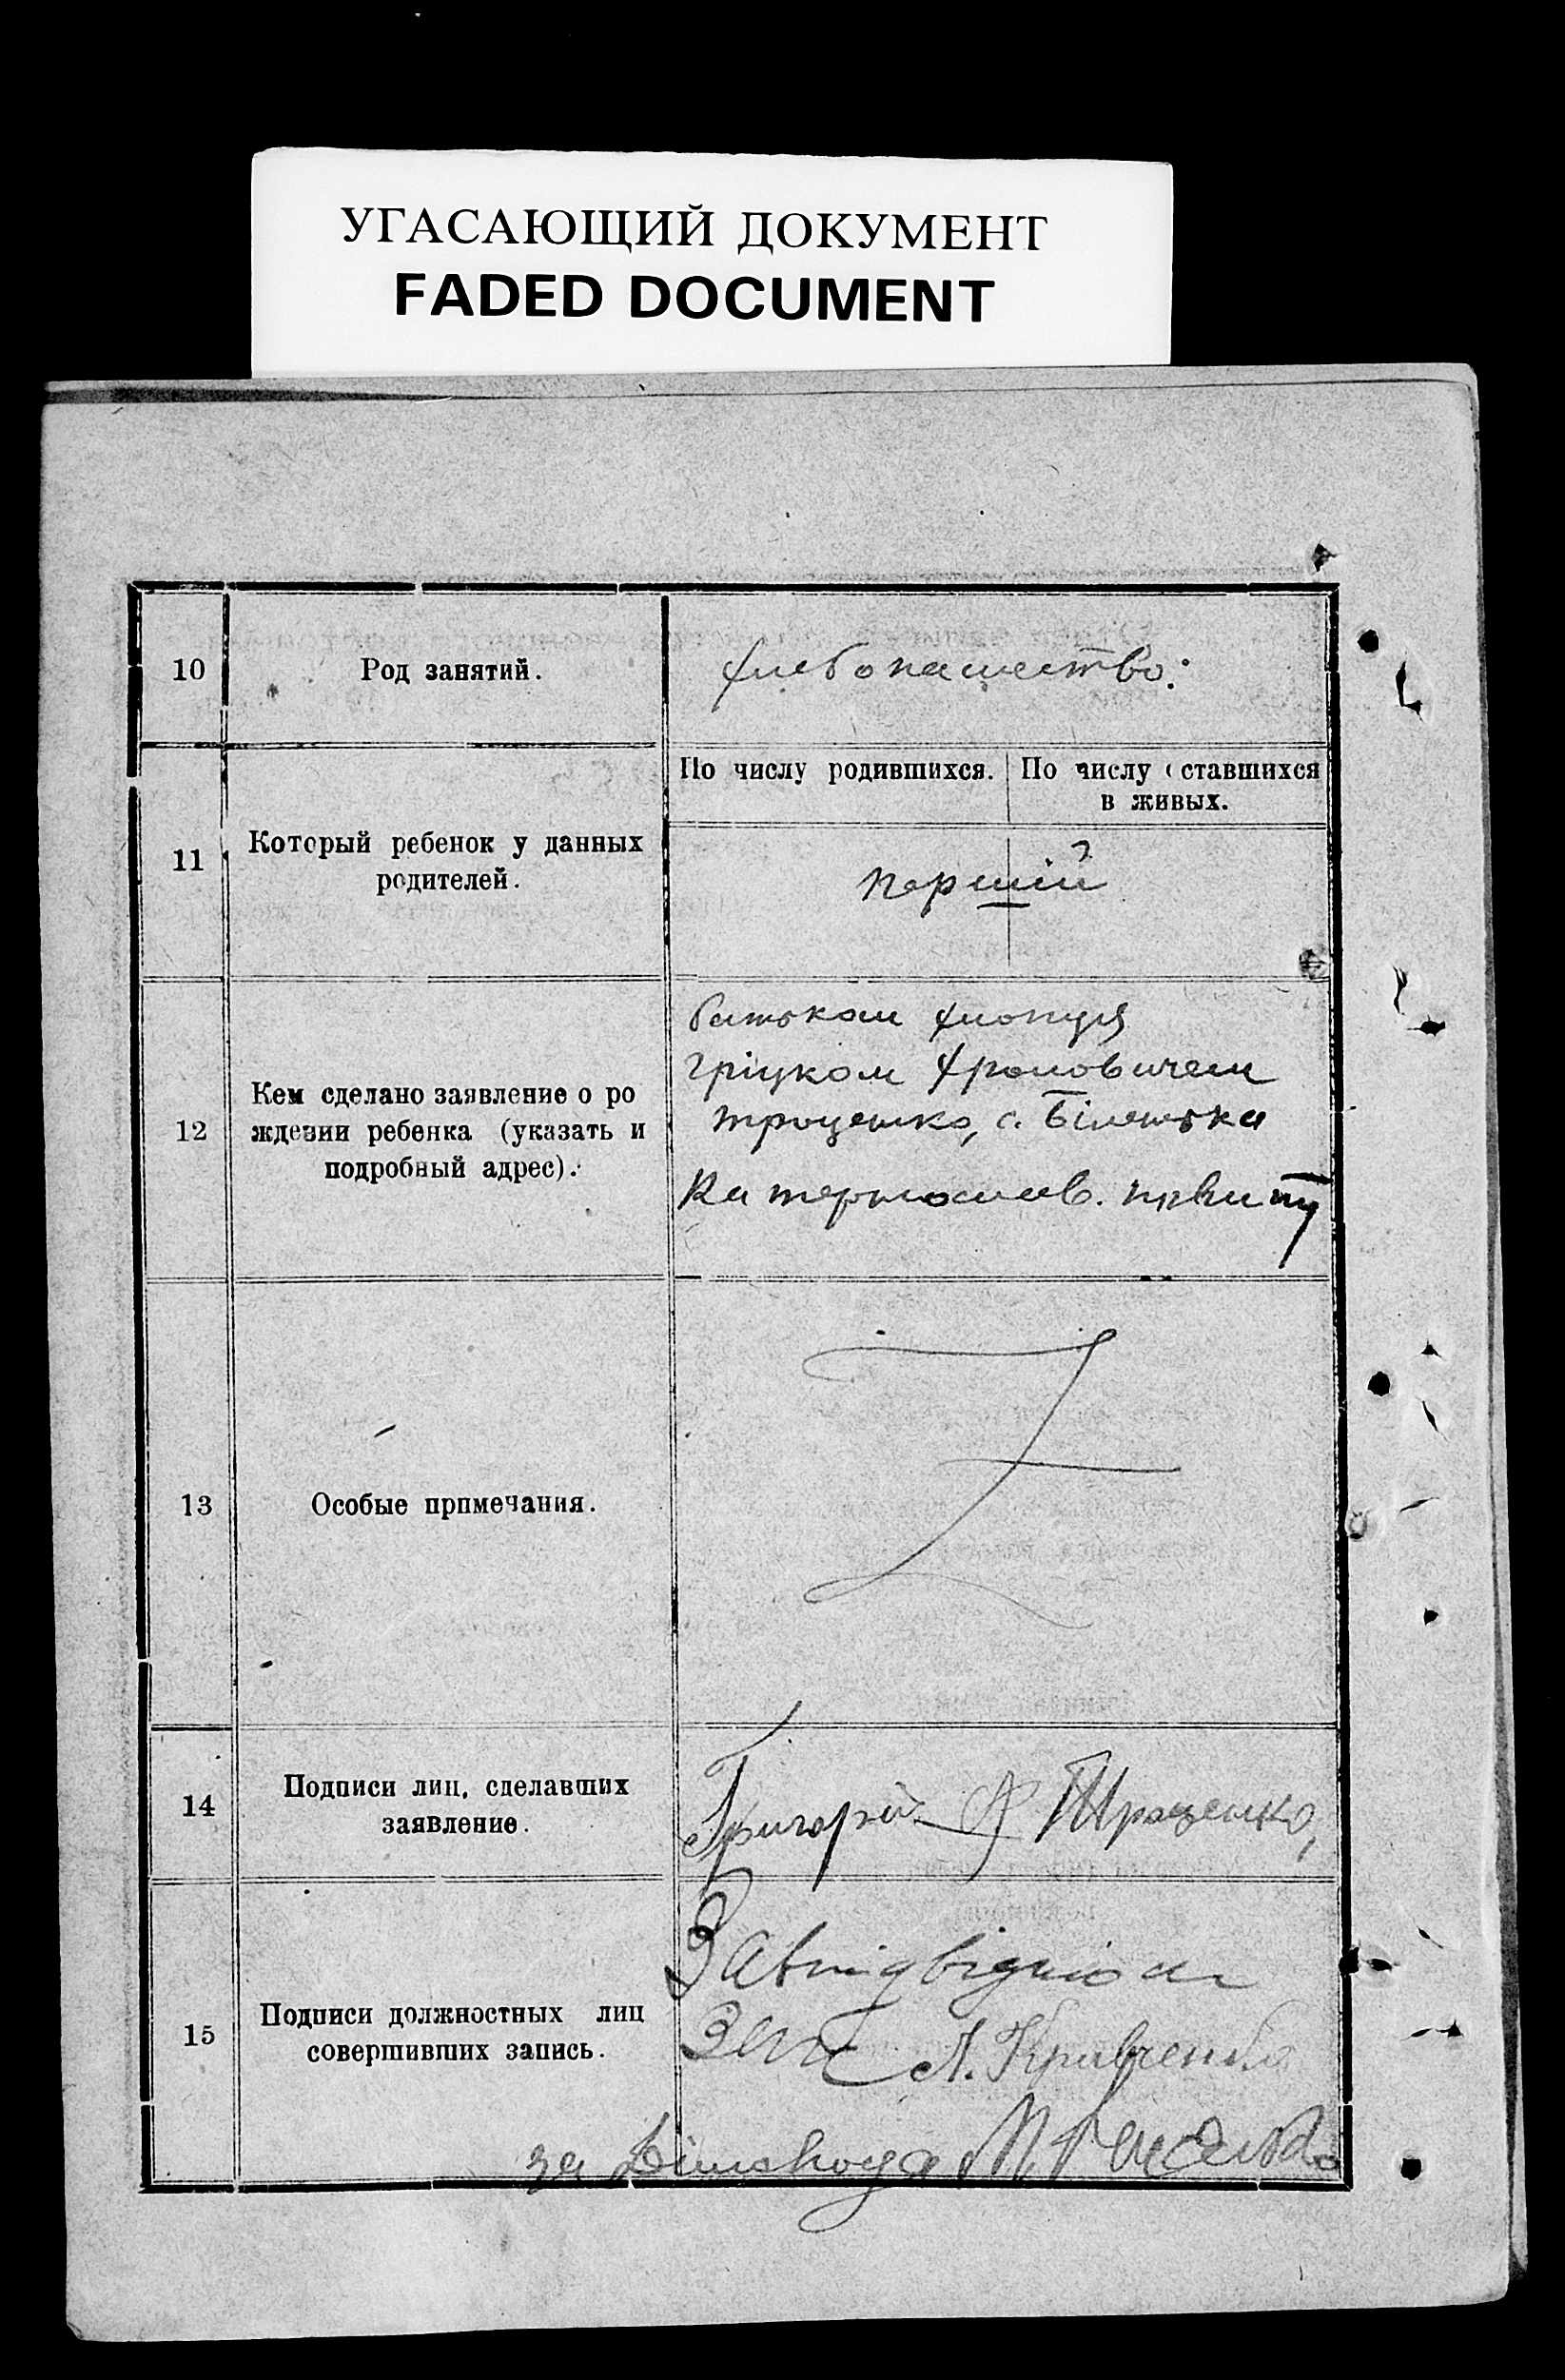 УГАСАЮЩИЙ ДОКУМЕНТ
FADED DOCUMENT
10
Род занятий.
хлебопашество.
11
Который ребенок у данных
родителей.
По числу родившихся.
По числу ставшихся
в живых.
першій
12
Кем сделано заявление о ро
ждении ребенка (указать и
подробный адрес).
батьком хлопця
Грицком Хромовичем
Троценко, с. Біленька
Катеринослав. повиту
13
Особые примечания.
14
Подписи лиц, сделавших
заявление.
Григорій Х Троценко,
15
Подписи должностных лиц
совершивших запись.
Зав підвідділом
ЗАГС Л. Кравченко
за Діловода